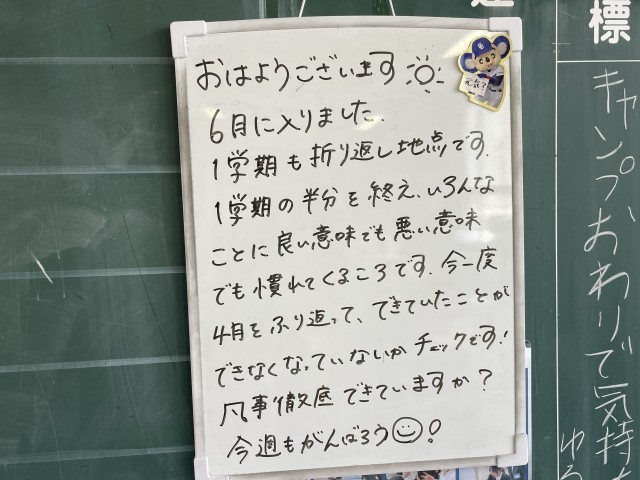 おはようございます
6月に入りました.
1学期も折り返し地点です.
1学期の半分を終え、いろんな
ことに良い意味でも悪い意味
でも慣れてくるころです.今一度
4月をふり返って、できていたことが
できなくなっていないかチェックです!
凡事徹底できていますか?
今週もがんばろう!
元気?
標
キャンプおわりで気持
ゆ